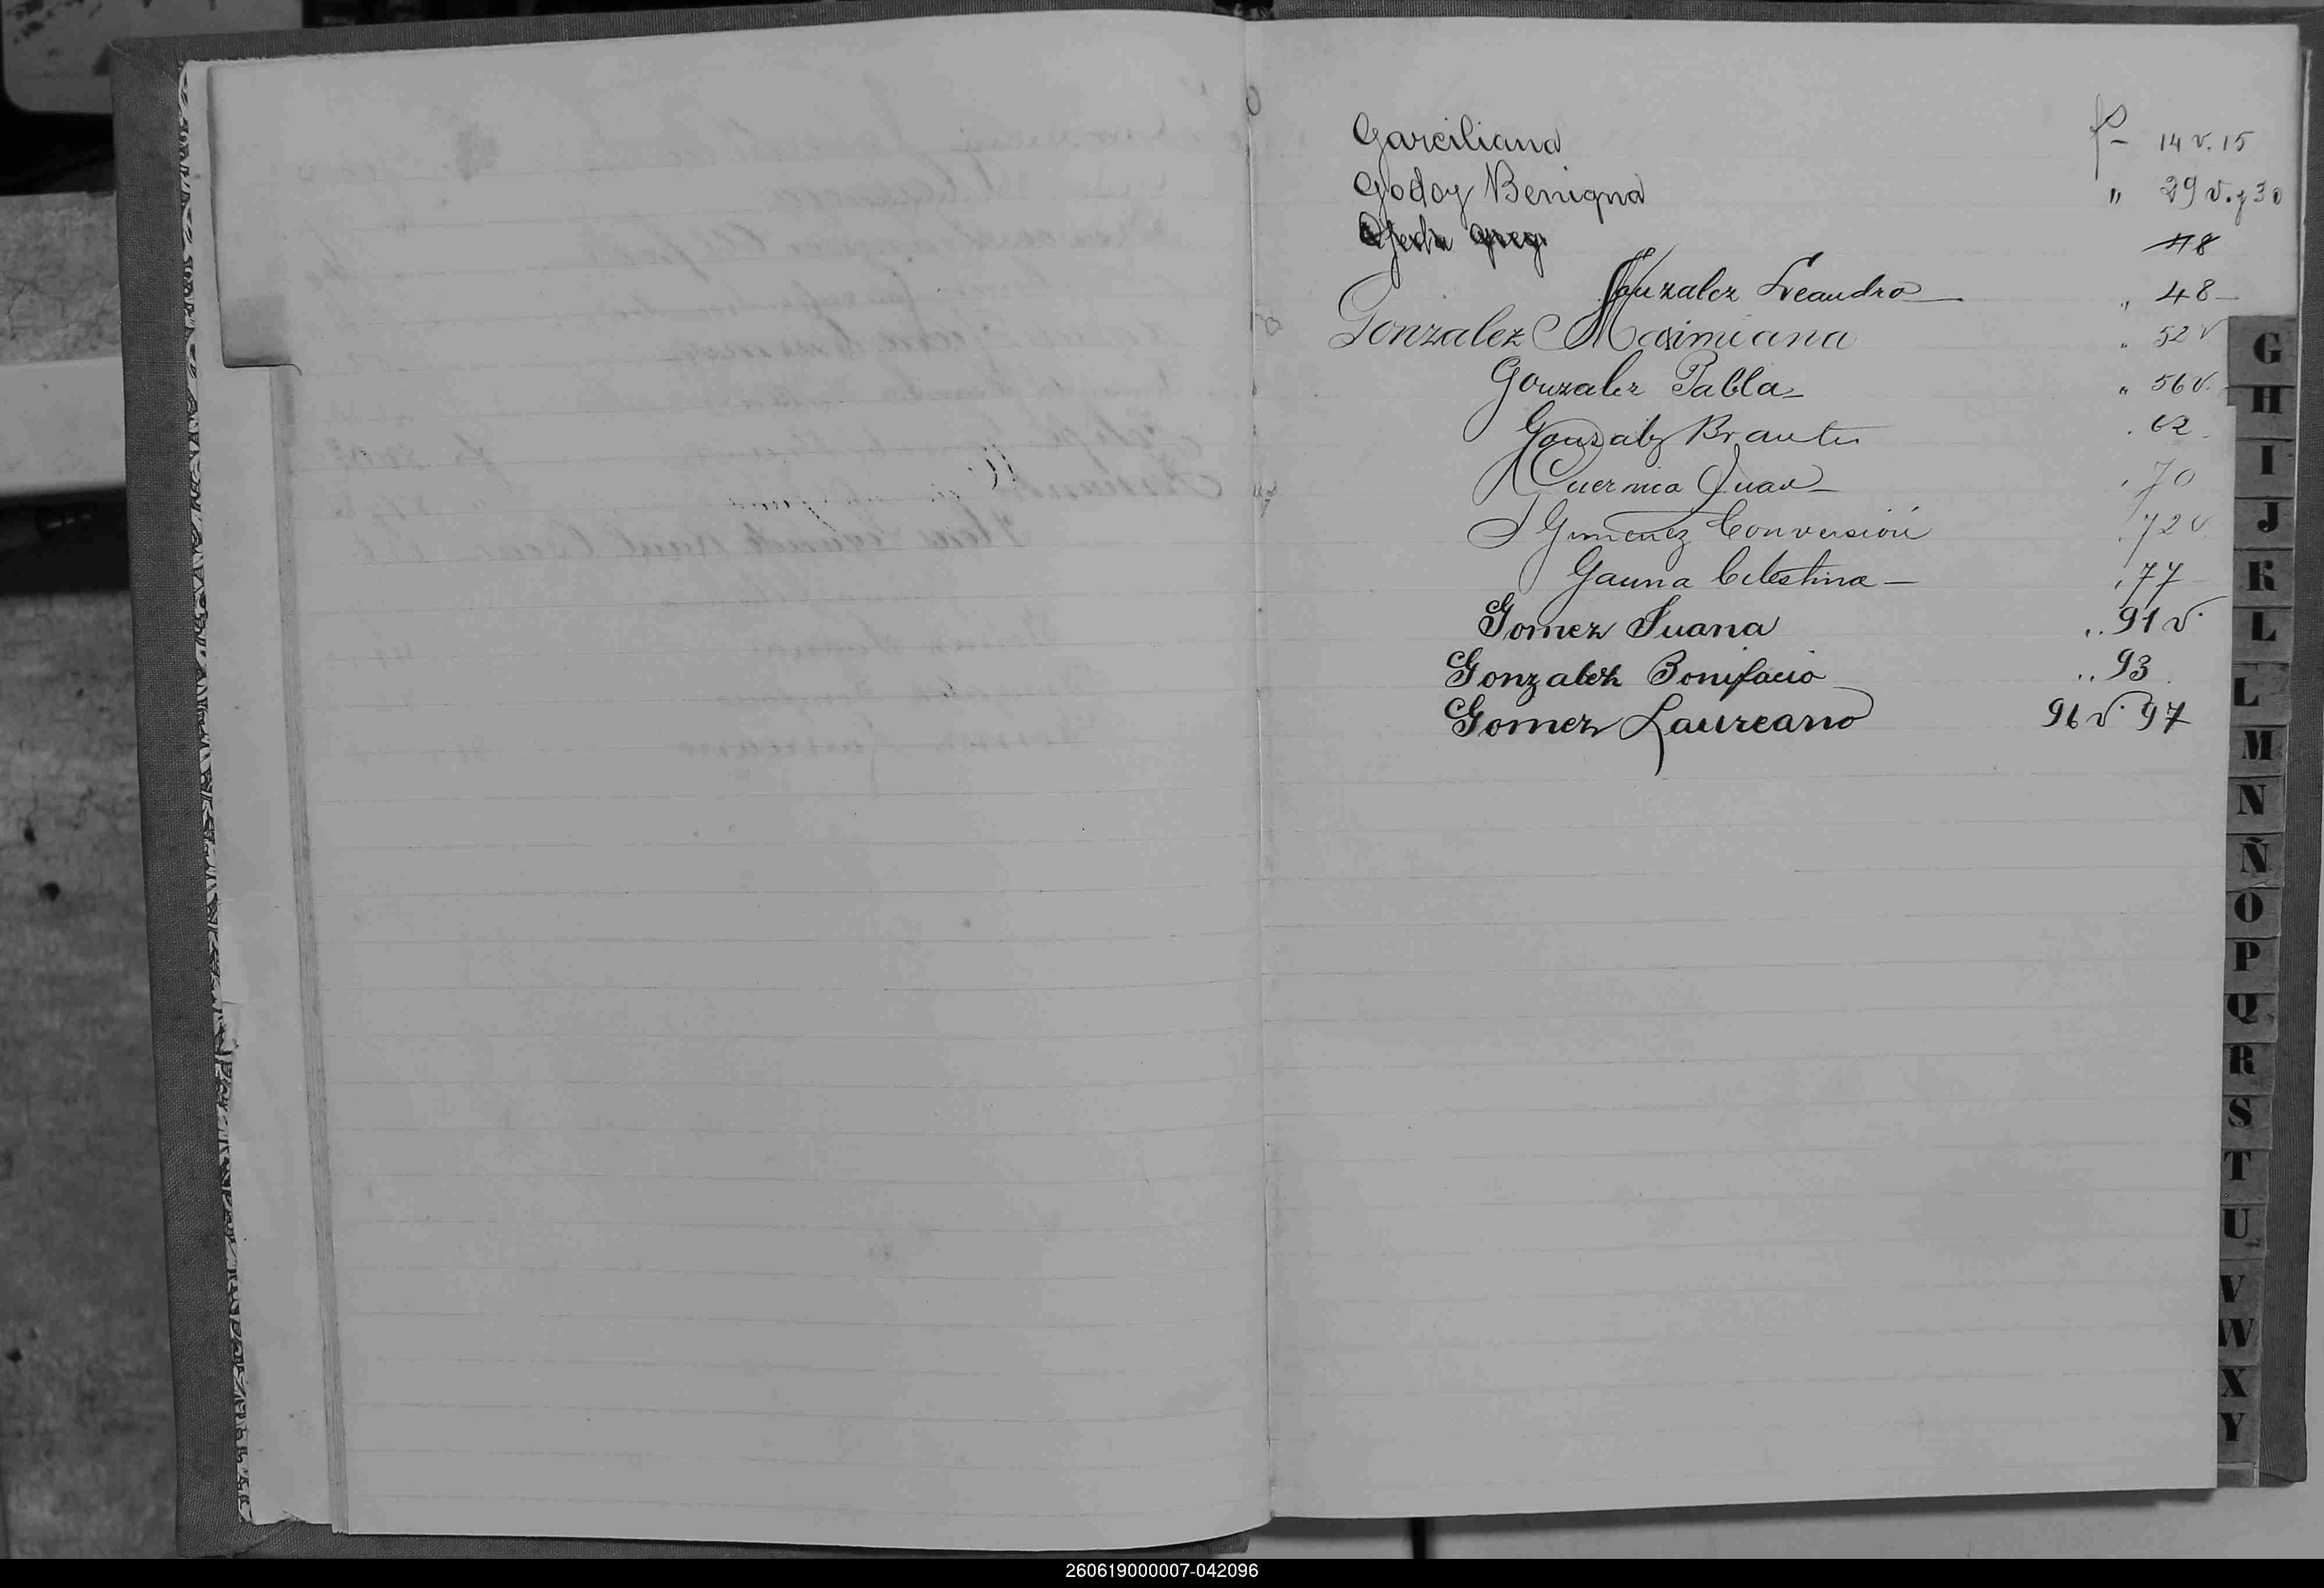 Garciliana fs 14 v. 15
Godoy Benigna " 29 v. y 30
Ojeda Greg 48
Gonzalez Leandro " 48
Gonzalez Maximiana " 52 v
Gonzalez Pabla " 56 v.
Gonzalez 62
Guernica Juan 70
Gimenez Conversión 72 v
Gauna Celestina 77
Gomez Juana " 91 v.
Gonzalez Bonifacio " 93
Gomez Laureano 96 v. 97
G
H
I
J
K
L
L
M
N
Ñ
O
P
Q
R
S
T
U
V
W
X
Y
260619000007-042096